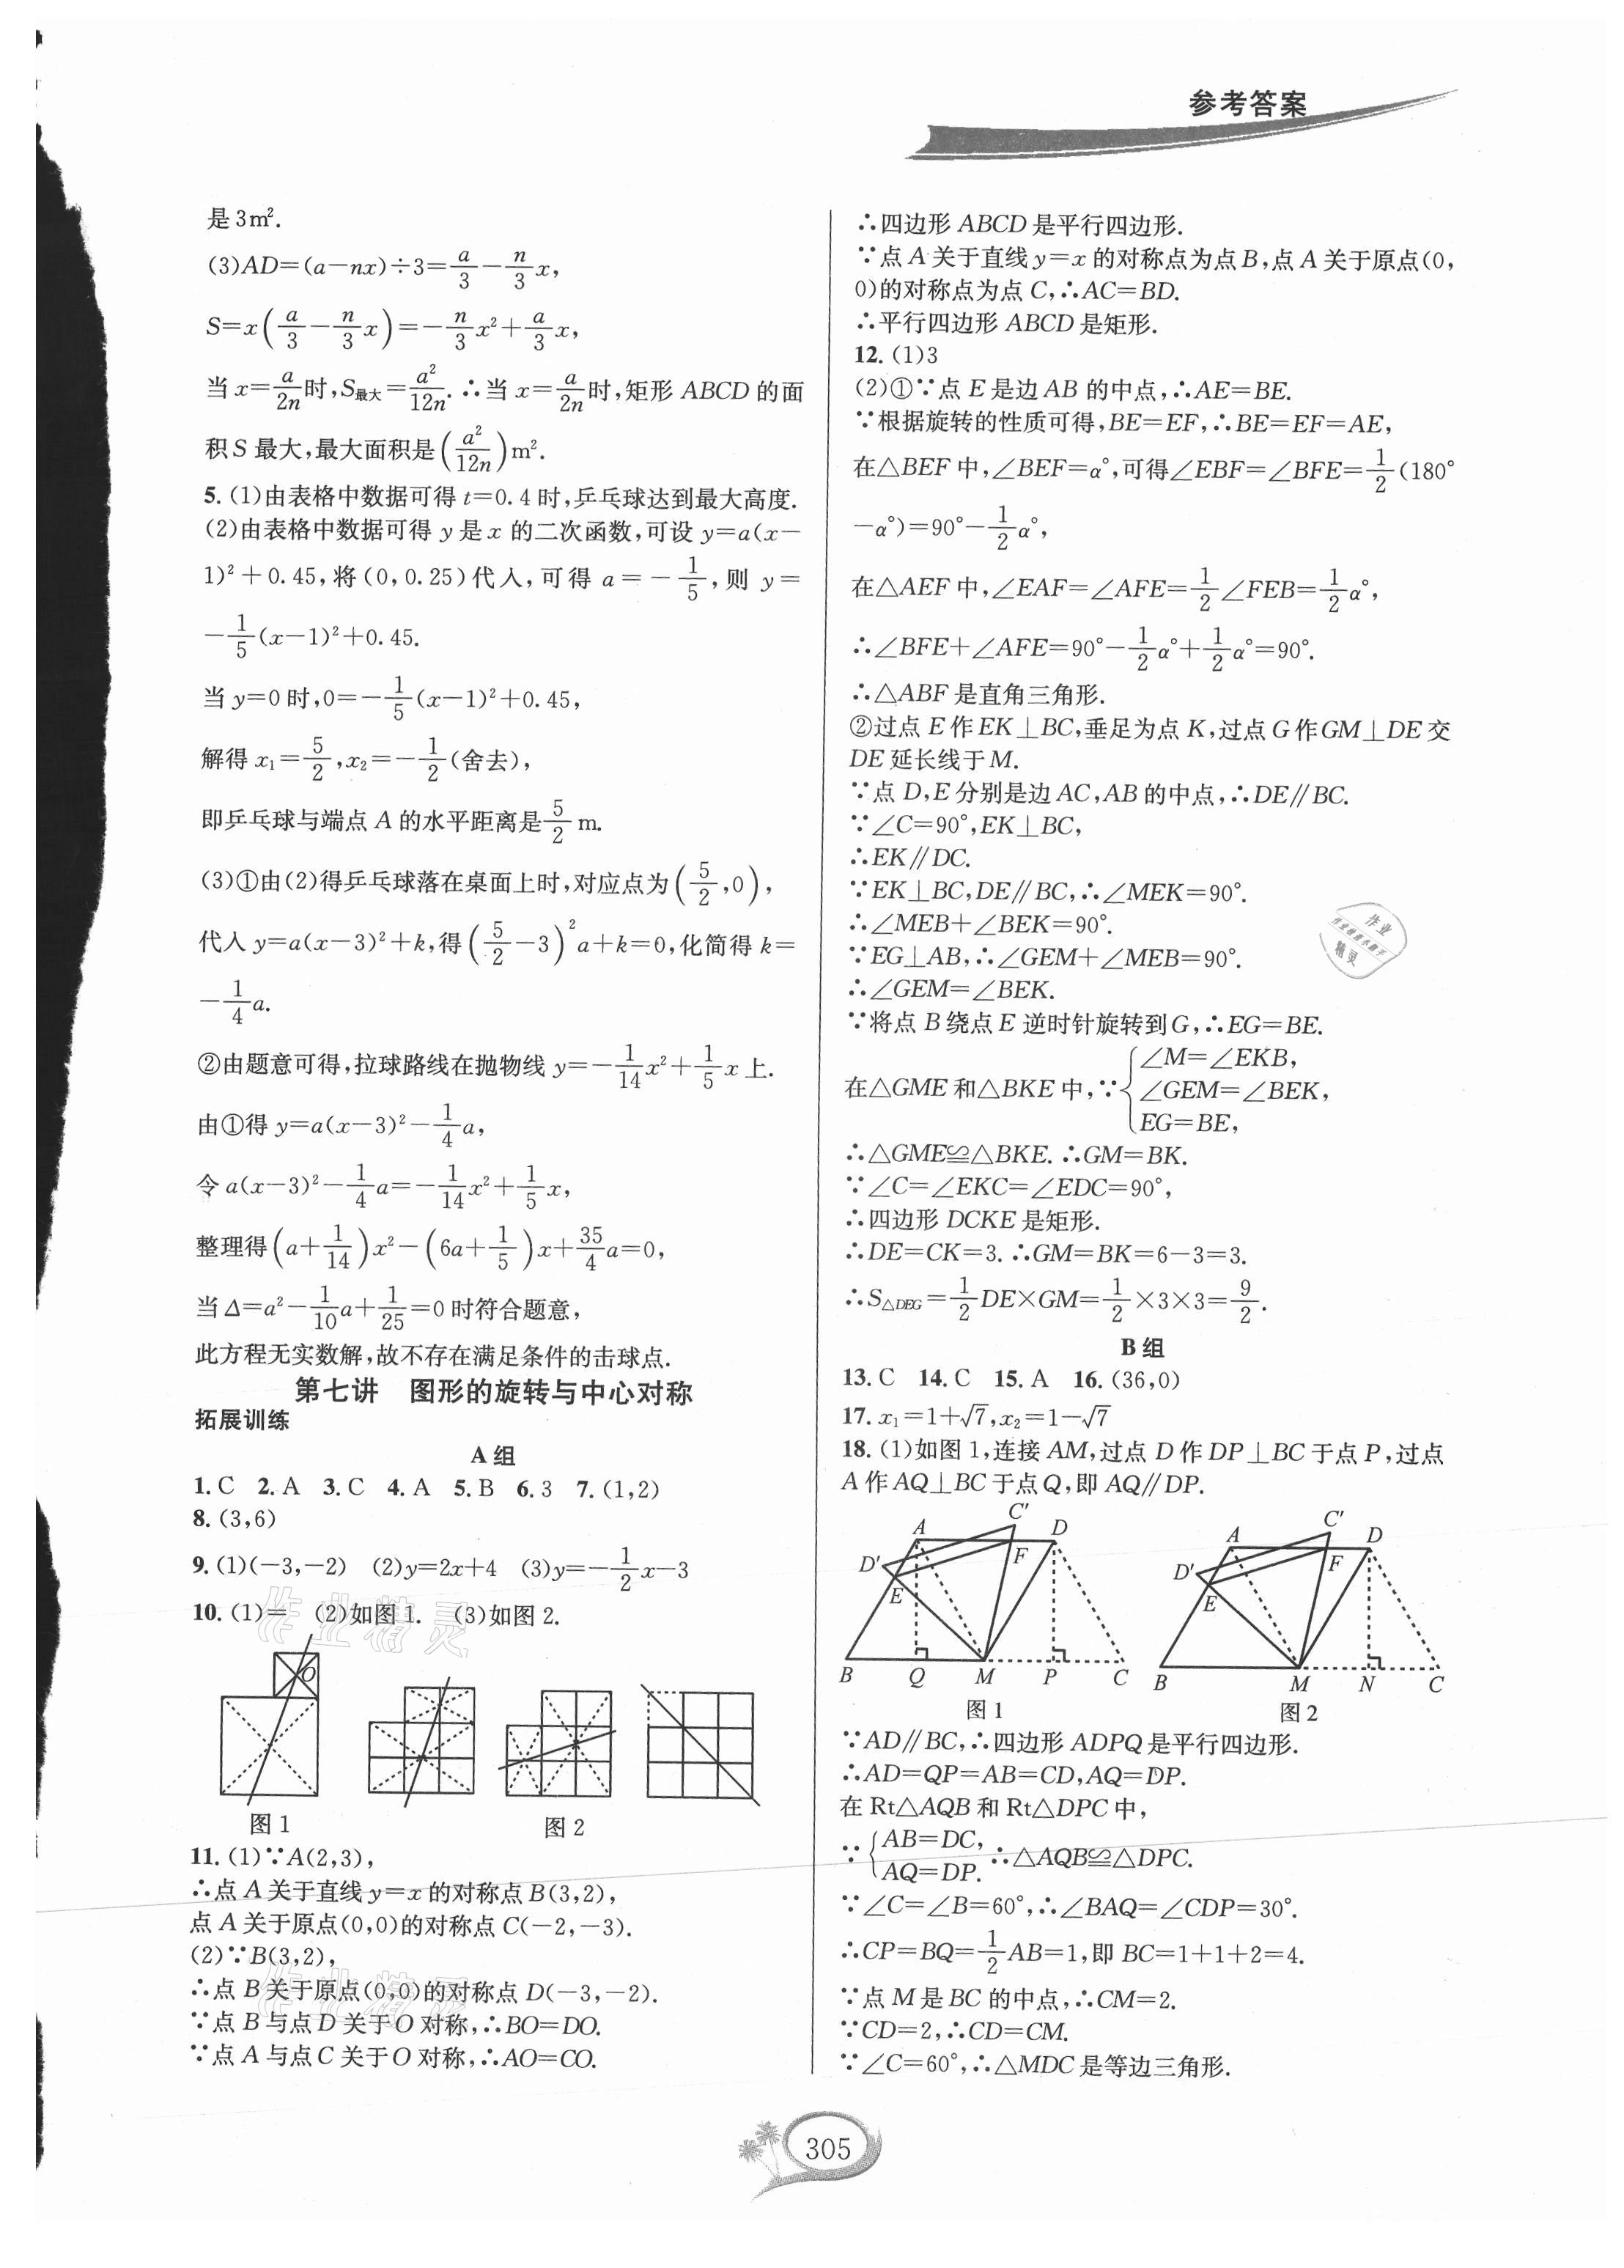 参考答案
是3m².
(3)AD=(a-nx)÷3=a/3-n/3x,
S=x(a/3-n/3x)=-n/3x²+a/3x,
当x=a/2n时,S最大=a²/12n.∴当x=a/2n时,矩形ABCD的面
积S最大,最大面积是(a²/12n)m².
5.(1)由表格中数据可得t=0.4时,乒乓球达到最大高度.
(2)由表格中数据可得y是x的二次函数,可设y=a(x-
1)²+0.45,将(0,0.25)代入,可得a=-1/5,则y=
-1/5(x-1)²+0.45.
当y=0时,0=-1/5(x-1)²+0.45,
解得x₁=5/2,x₂=-1/2(舍去),
即乒乓球与端点A的水平距离是5/2m.
(3)①由(2)得乒乓球落在桌面上时,对应点为(5/2,0),
代入y=a(x-3)²+k,得(5/2-3)²a+k=0,化简得k=
-1/4a.
②由题意可得,拉球路线在抛物线y=-1/14x²+1/5x上.
由①得y=a(x-3)²-1/4a,
令a(x-3)²-1/4a=-1/14x²+1/5x,
整理得(a+1/14)x²-(6a+1/5)x+35/4a=0,
当Δ=a²-1/10a+1/25=0时符合题意,
此方程无实数解,故不存在满足条件的击球点.
第七讲 图形的旋转与中心对称
拓展训练
A组
1.C 2.A 3.C 4.A 5.B 6.3 7.(1,2)
8.(3,6)
9.(1)(-3,-2) (2)y=2x+4 (3)y=-1/2x-3
10.(1)= (2)如图1. (3)如图2.
O
图1
图2
11.(1)∵A(2,3),
∴点A关于直线y=x的对称点B(3,2),
点A关于原点(0,0)的对称点C(-2,-3).
(2)∵B(3,2),
∴点B关于原点(0,0)的对称点D(-3,-2).
∵点B与点D关于O对称,∴BO=DO.
∵点A与点C关于O对称,∴AO=CO.
∴四边形ABCD是平行四边形.
∵点A关于直线y=x的对称点为点B,点A关于原点(0,
0)的对称点为点C,∴AC=BD.
∴平行四边形ABCD是矩形.
12.(1)3
(2)①∵点E是边AB的中点,∴AE=BE.
∵根据旋转的性质可得,BE=EF,∴BE=EF=AE,
在△BEF中,∠BEF=α°,可得∠EBF=∠BFE=1/2(180°
-α°)=90°-1/2α°,
在△AEF中,∠EAF=∠AFE=1/2∠FEB=1/2α°,
∴∠BFE+∠AFE=90°-1/2α°+1/2α°=90°.
∴△ABF是直角三角形.
②过点E作EK⊥BC,垂足为点K,过点G作GM⊥DE交
DE延长线于M.
∵点D,E分别是边AC,AB的中点,∴DE∥BC.
∵∠C=90°,EK⊥BC,
∴EK∥DC.
∵EK⊥BC,DE∥BC,∴∠MEK=90°.
∴∠MEB+∠BEK=90°.
∵EG⊥AB,∴∠GEM+∠MEB=90°.
∴∠GEM=∠BEK.
∵将点B绕点E逆时针旋转到G,∴EG=BE.
∠M=∠EKB,
在△GME和△BKE中,∵{∠GEM=∠BEK,
EG=BE,
∴△GME≌△BKE.∴GM=BK.
∵∠C=∠EKC=∠EDC=90°,
∴四边形DCKE是矩形.
∴DE=CK=3.∴GM=BK=6-3=3.
∴S△DEG=1/2DE×GM=1/2×3×3=9/2.
B组
13.C 14.C 15.A 16.(36,0)
17.x₁=1+√7,x₂=1-√7
18.(1)如图1,连接AM,过点D作DP⊥BC于点P,过点
A作AQ⊥BC于点Q,即AQ∥DP.
A C' D D' F E B Q M P C
图1
A C' D D' F E B M N C
图2
∵AD∥BC,∴四边形ADPQ是平行四边形.
∴AD=QP=AB=CD,AQ=DP.
在Rt△AQB和Rt△DPC中,
∵{AB=DC,
AQ=DP. ∴△AQB≌△DPC.
∵∠C=∠B=60°,∴∠BAQ=∠CDP=30°.
∴CP=BQ=1/2AB=1,即BC=1+1+2=4.
∵点M是BC的中点,∴CM=2.
∵CD=2,∴CD=CM.
∵∠C=60°,∴△MDC是等边三角形.
305
作业精灵
作业精灵
作业
精灵